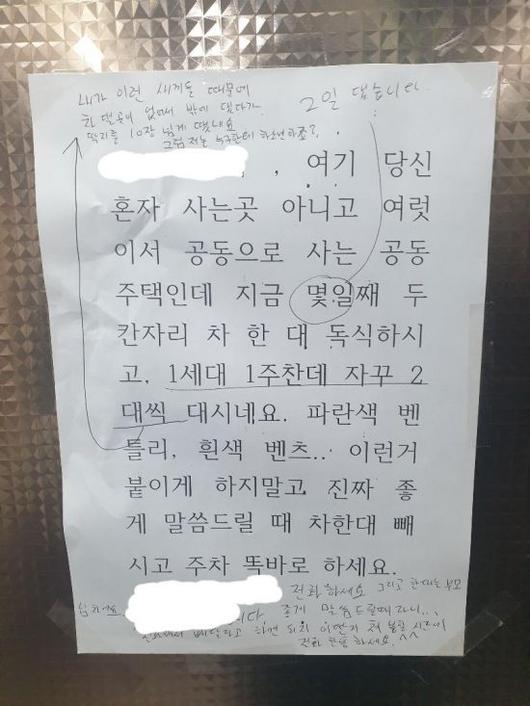 내가 이런 새끼들 때문에
차 댈곳이 없어서 밖에 댔다가
딱지를 10장 넘게 뗐네요
그럼 저는 누구한테 하소연하죠?
2일 댔습니다.
여기 당신
혼자 사는곳 아니고 여럿
이서 공동으로 사는 공동
주택인데 지금 몇일째 두
칸자리 차 한 대 독식하시
고, 1세대 1주찬데 자꾸 2
대씩 대시네요. 파란색 벤
틀리, 흰색 벤츠.. 이런거
붙이게 하지말고 진짜 좋
게 말씀드릴 때 차한대 빼
시고 주차 똑바로 하세요.
전화하세요 그리고 한대는 부모
좋게 말씀드릴때라니..
하면 되지 이딴지
전화 한통 하세요.